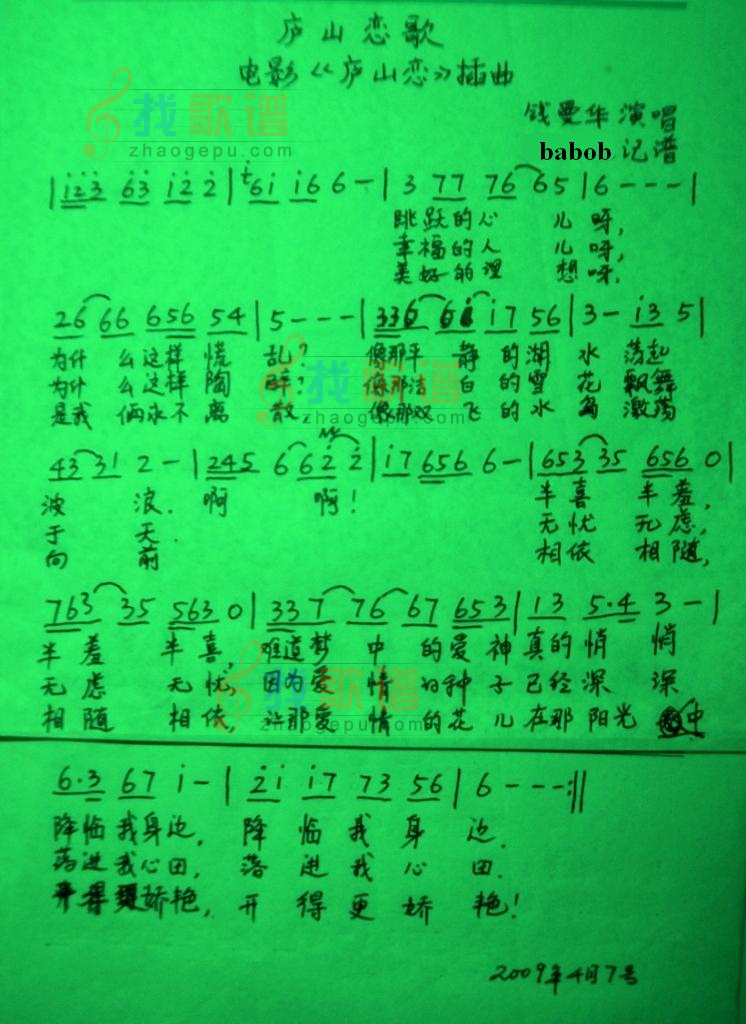 庐山恋歌
电影《庐山恋》插曲
钱曼华 演唱
babob 记谱
找歌谱
zhaogepu.com
|i̇2̇3̇ 6̇3̇ i̇2̇ 2̇|ⁱ6i̇ i̇6 6-|3 77 76 65|6---|
跳跃的心 儿呀,
幸福的人 儿呀,
美好的理 想呀,
26 66 656 54|5---|336 6i̇ i̇7 56|3-i̇3 5|
为什么这样慌乱 像那平静的湖水荡起
为什么这样陶醉? 像那洁白的雪花飘舞
是我俩永不离散, 像那双飞的水鸟激荡
找歌谱
zhaogepu.com
43 31 2-|245 6 62̇ 2̇|i̇7 656 6-|653 35 656 0|
波浪. 啊 啊! 半喜半羞,
于天. 无忧无虑,
向前 相依相随,
763 35 563 0|337 76 67 653|13 5·4 3-|
半羞半喜, 难道梦中的爱神真的悄悄
无虑无忧, 因为爱情的种子已经深深
相随相依, 让那爱情的花儿在那阳光中
找歌谱
zhaogepu.com
6·3 67 i̇-|2̇i̇ i̇7 73 56|6---:||
降临我身边, 降临我身边.
落进我心田, 落进我心田.
开得更娇艳, 开得更娇艳!
2009年4月7号